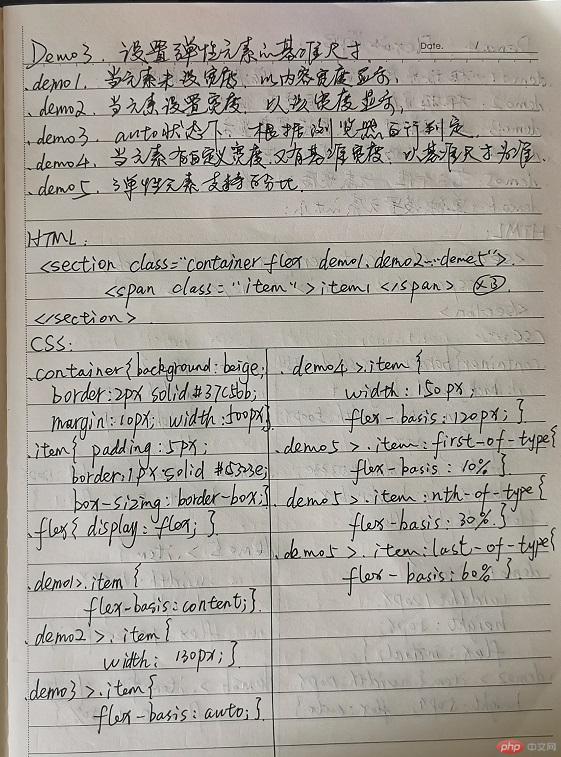 Demo3. 设置弹性元素的基准尺寸
Date.
.demo1. 当元素未设宽度, 以内容宽度显示,
.demo2. 当元素设置宽度, 以该宽度显示,
.demo3. auto状态下, 根据浏览器自行判定.
.demo4. 当元素有自定义宽度,又有基准宽度, 以基准尺寸为准.
.demo5. 弹性元素支持百分比.
HTML:
<section class="container flex demo1.demo2...demo5">
<span class="item">item1</span> ×3
</section>
CSS:
.container{background:beige;
border:2px solid #37c5bb;
margin:10px; width:500px}
.item{ padding:5px;
border:1px solid #5323e;
box-sizing:border-box;}
.flex{ display:flex; }
.demo1>.item {
flex-basis:content;}
.demo2 >.item{
width: 130px;}
.demo3 >.item{
flex-basis:auto;}
.demo4 >.item {
width: 150px;
flex-basis:120px;}
.demo5 >.item:first-of-type{
flex-basis: 10% }
.demo5 >.item:nth-of-type{
flex-basis:30% }
.demo5 >.item:last-of-type{
flex-basis:60% }
php 中文网